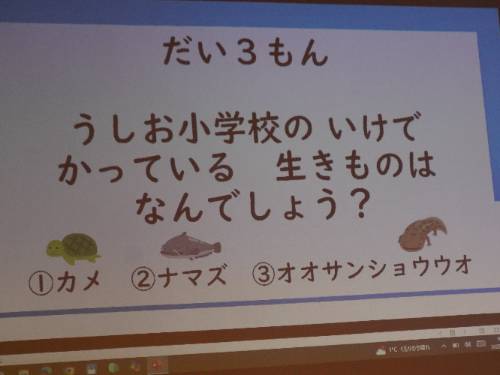 だい３もん
うしお小学校の いけで
かっている　生きものは
なんでしょう？
①カメ　②ナマズ　③オオサンショウウオ
1℃ くもり